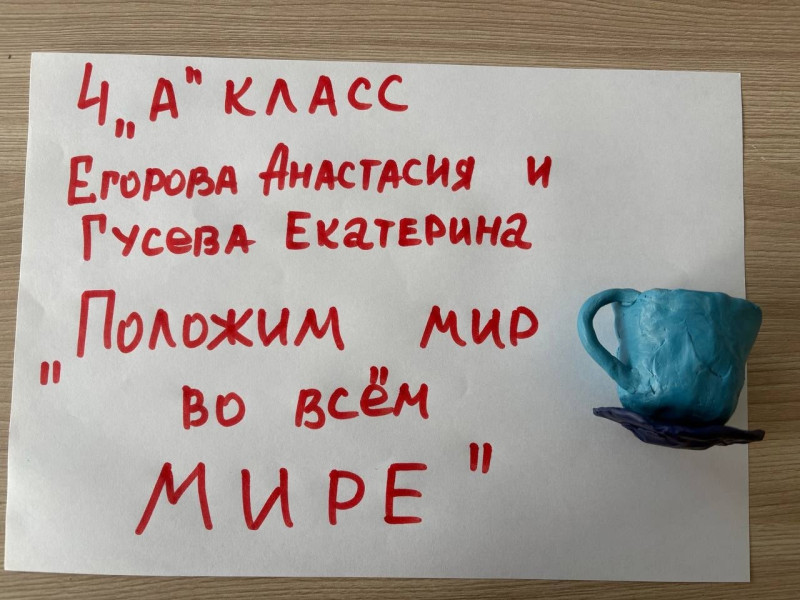 4 „А" КЛАСС
ЕГОРОВА АНАСТАСИЯ И
ГУСЕВА ЕКАТЕРИНА
"ПОЛОЖИМ МИР
ВО ВСЁМ
МИРЕ"